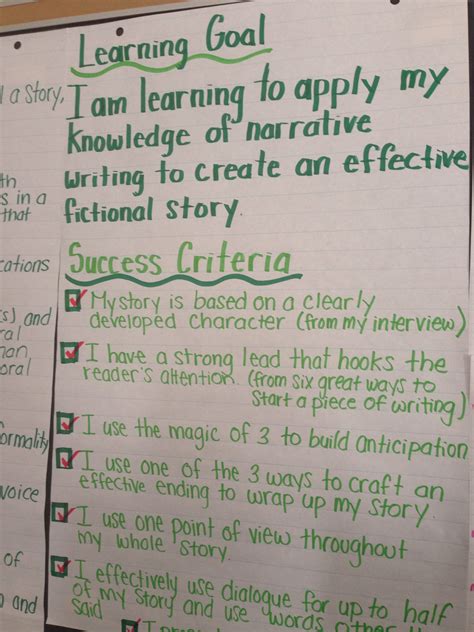 Learning Goal
I am learning to apply my
knowledge of narrative
writing to create an effective
fictional story.
Success Criteria
My story is based on a clearly
developed character (from my interview)
I have a strong lead that hooks the
reader's attention (from six great ways to
start a piece of writing)
I use the magic of 3 to build anticipation
I use one of the 3 ways to craft an
effective ending to wrap up my story.
I use one point of view throughout
my whole story.
I effectively use dialogue for up to half
of my story and use words other
said
a story,
s in a
that
and
ormality
voice
of
and